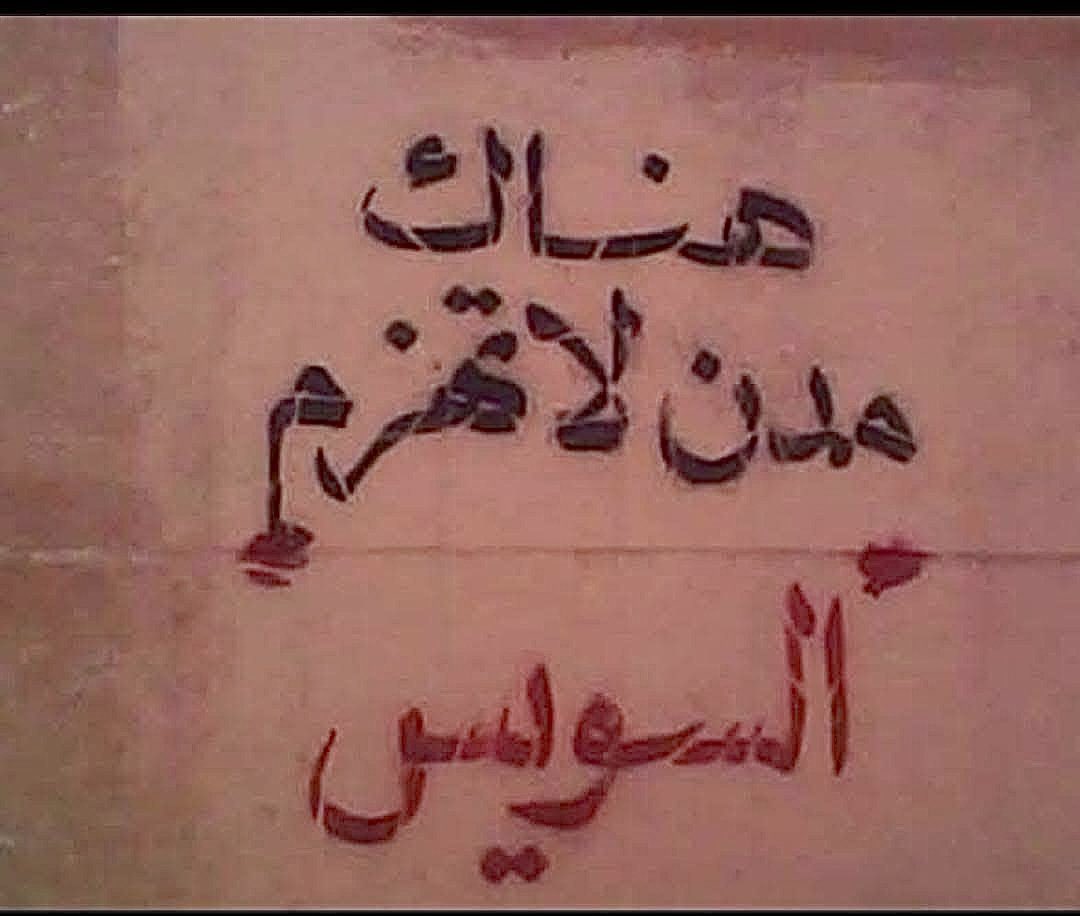 هناك
مدن لا تهزم
السويس